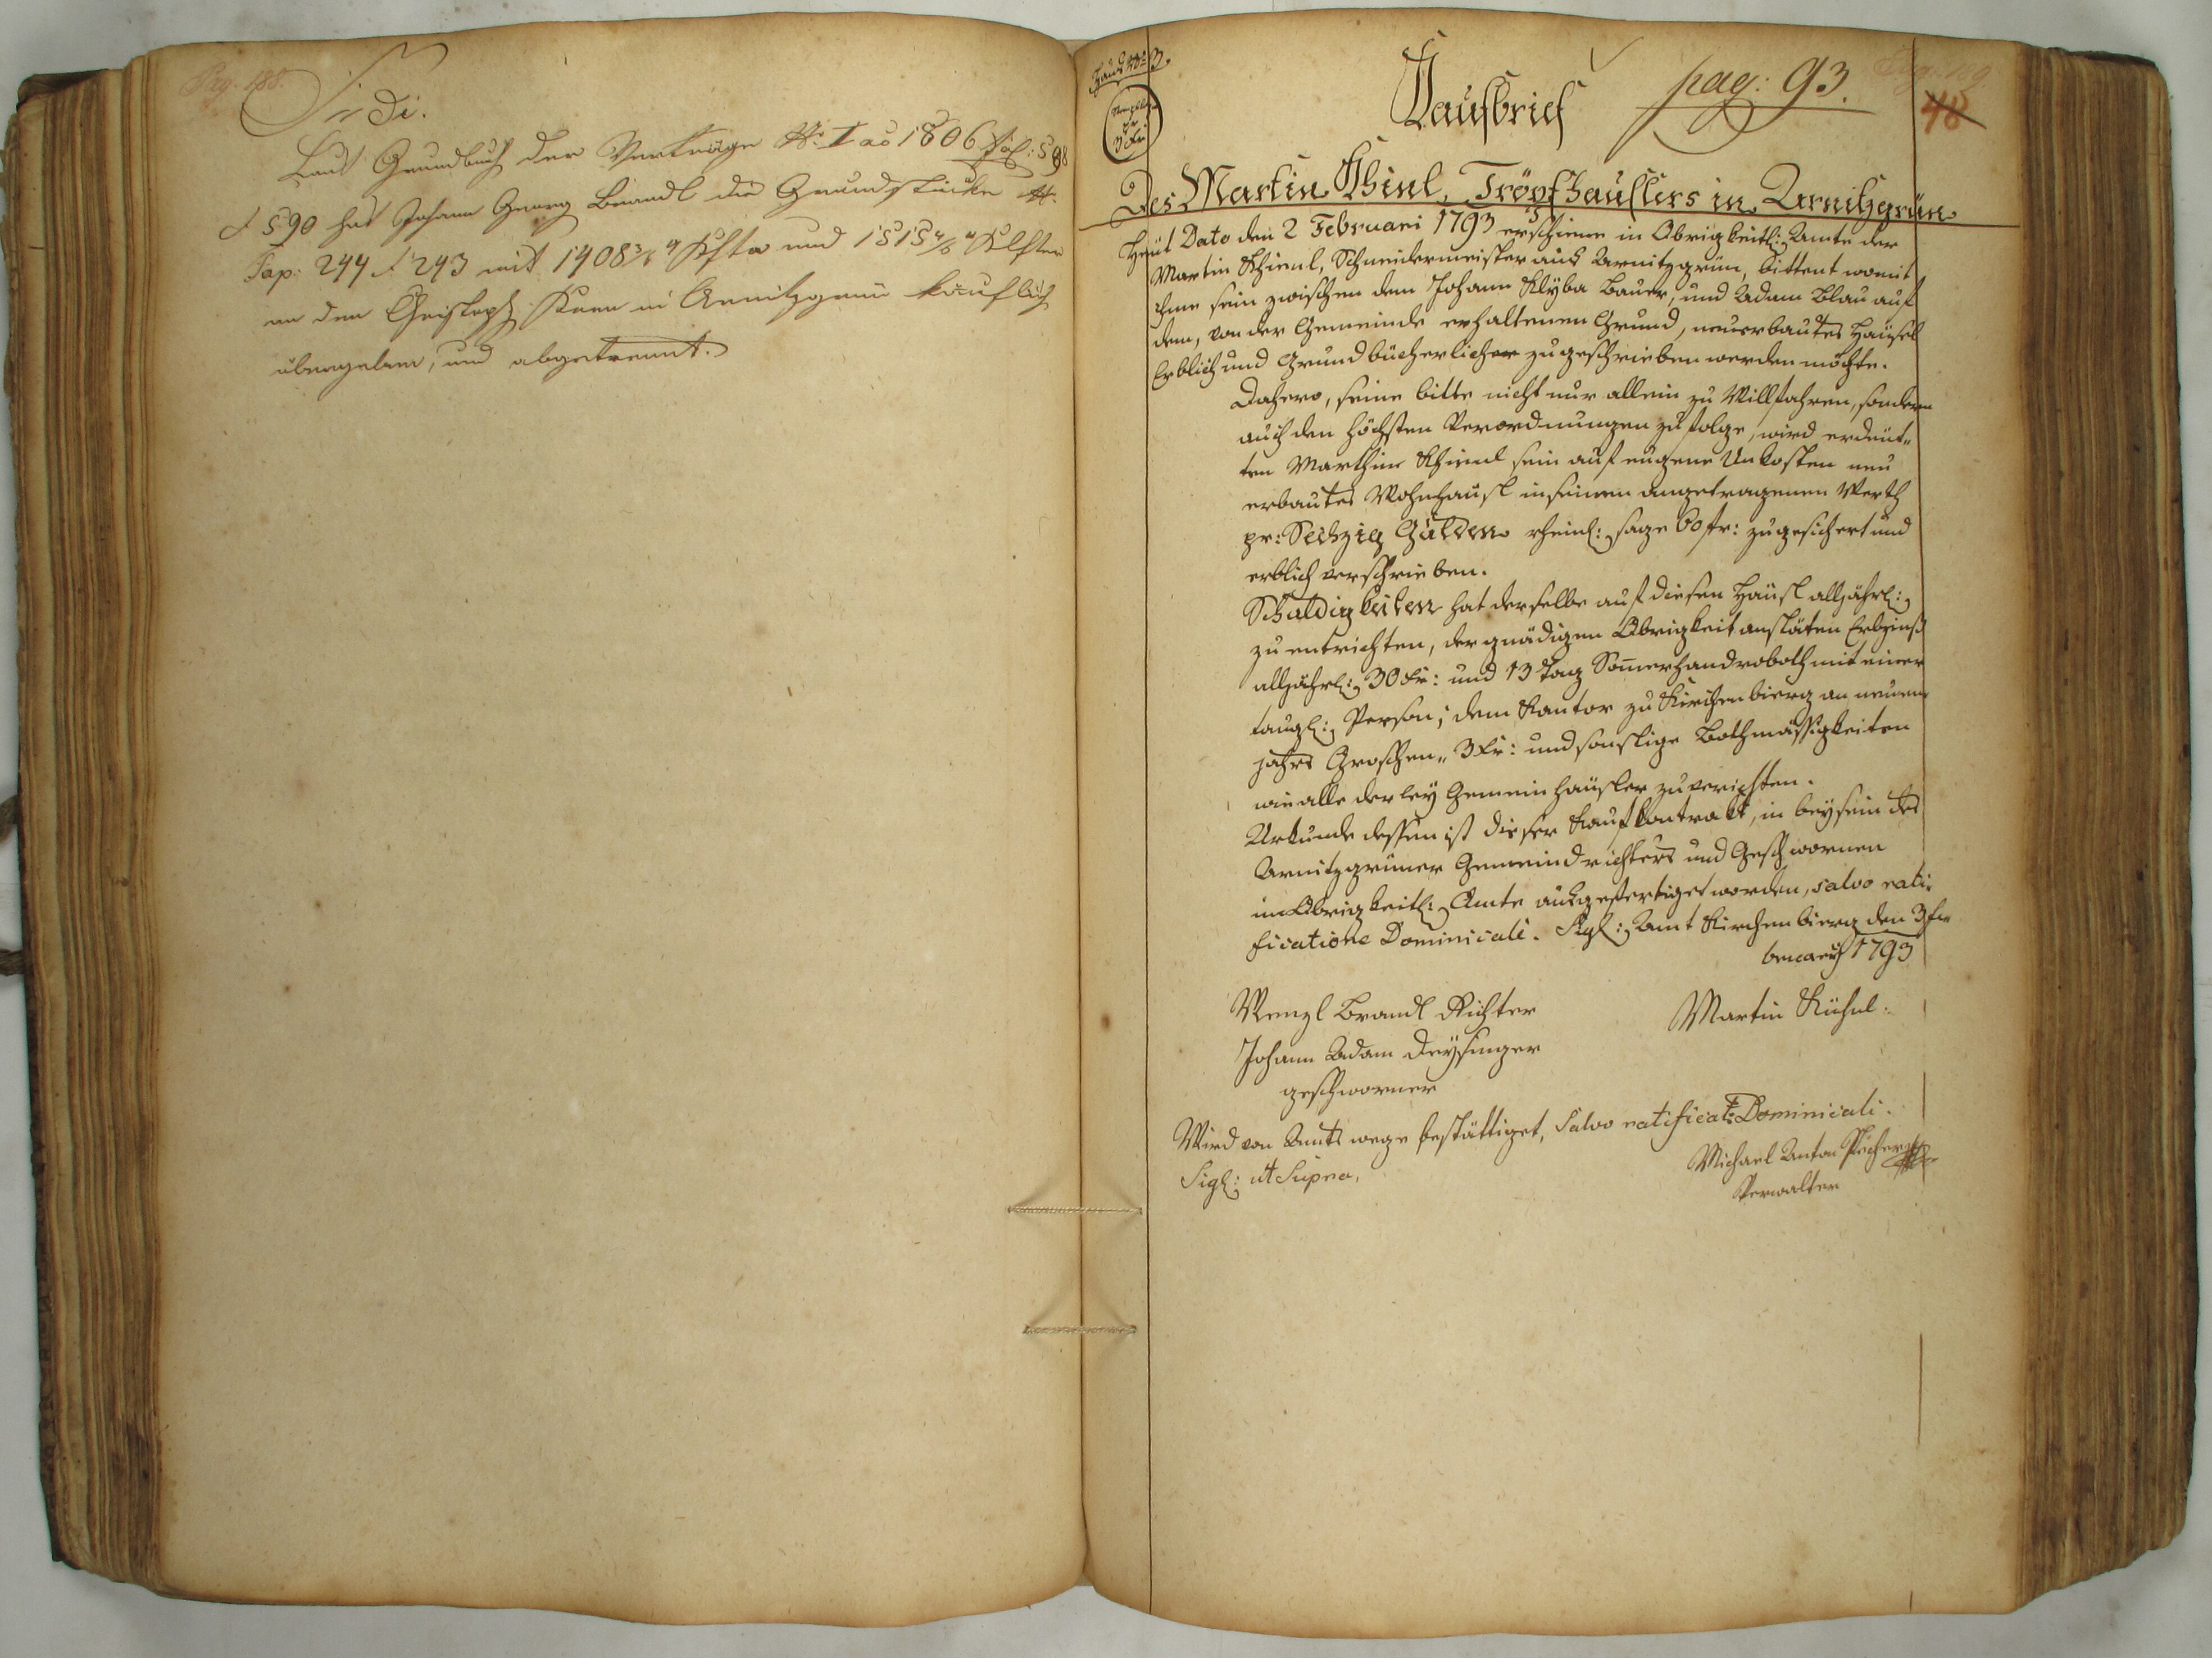 Pag. 188.
Laut Grundbuch der Verträge № I ao 1806 Fol: 598
& 590 hat Johann Georg Brandl die Grundstücke №
Top: 244 & 243 mit 1408 3/6 und 1515 4/6 Klafter
an den Christoph in Arnitzgrün käuflich
übergeben, und abgetrennt.
Haus № 3.
3 Kr
Kaufbrief
pag: 93.
48
Des Martin Khinl, Tröpfhauslers in Arnitzgrün
Heut Dato den 2 Februari 1793 erschiene in Obrigkeitl: Amte der
Martin Khienl, Schneidermeister aus Arnitzgrün, bittent womit
ihme sein zwischen dem Johann Klyba Bauer, und Adam Blau auf
dem, von der Gemeinde erhaltenen Grund, neuerbautes Häusel
Erblich und Grundbücherlicher zugeschrieben werden möchte.
Dahero, seine bitte nicht nur allein zu Willfahren, sondern
auch den höchsten Verordnungen zufolge, wird erdeut„
ten Marthin Khienl sein auf eugene Unkosten neu
erbautes Wohnhausl in seinen angetragenen Werth
pr: Sechzig Gulden rheinl: sage 60 fr: zugesichert und
erblich verschrieben.
Schuldigkeiten hat derselbe auf diesen Häusl alljährl:
zu entrichten, der gnädigen Obrigkeit anstäten Erbzinß
alljährl: 30 Kr: und 13 Tag Sommerhandroboth mit einer
taugl: Person; dem Kantor zu Kirchenbierg an neuen
jahrs Groschen„ 3 Kr: und sonstige Bothmässigkeiten
wie alle derley Gemeinhäusler zu verichten.
Urkunde dessen ist dieser Kaufkontrakt, in beysein des
Arnitzgrüner Gemeindrichters und Geschwornen
im Obrigkeitl: Amte ausgefertiget worden, salvo rati„
ficatione Dominicali. Sigl: Amt Kirchenbierg den 3 Fe
bruary 1793
Wenzl Brandl Richter
Martin Kühnl:
Johann Adam Deysinger
geschworner
Wird von Amts wege bestättiget, Salvo ratificat: Dominicali.
Sigl: ut Supra,
Michael Anton
Verwalter